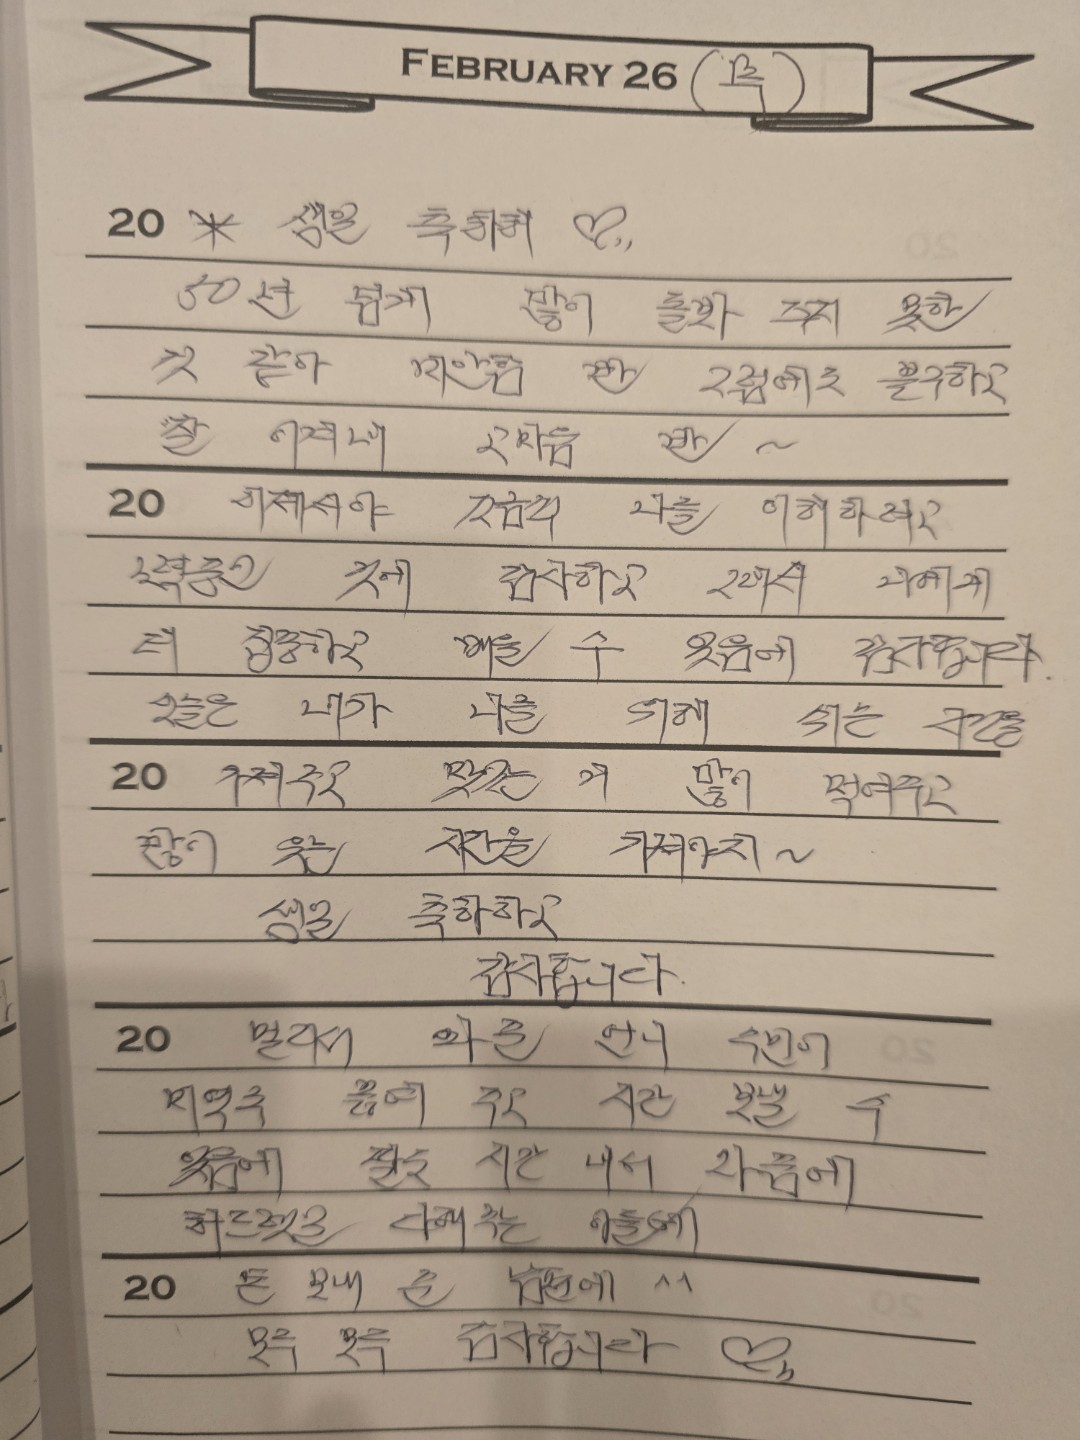 FEBRUARY 26 (목)
20 * 생일 축하해 ♡,,
50년 넘게 많이 돌봐 주지 못한
것 같아 미안함 반 그럼에도 불구하고
잘 이겨내 고마움 반 ~
20 이제서야 조금씩 나를 이해하려고
노력중인 것에 감사하고 그래서 나에게
더 집중하고 배울 수 있음에 감사합니다.
오늘은 내가 나를 위해 쉬는 시간을
20 가져주고 맛있는 거 많이 먹여주고
많이 웃는 시간을 가져야지 ~
생일 축하하고
감사합니다.
20 멀리서 와 준 언니 수민이
미역국 끓여 주고 시간 보낼 수
있음에 짧은 시간 내서 와줌에
해주는 아들에게
20 돈 보내 준 남편에 ^^
모두 모두 감사합니다 ♡,,
20
20
20